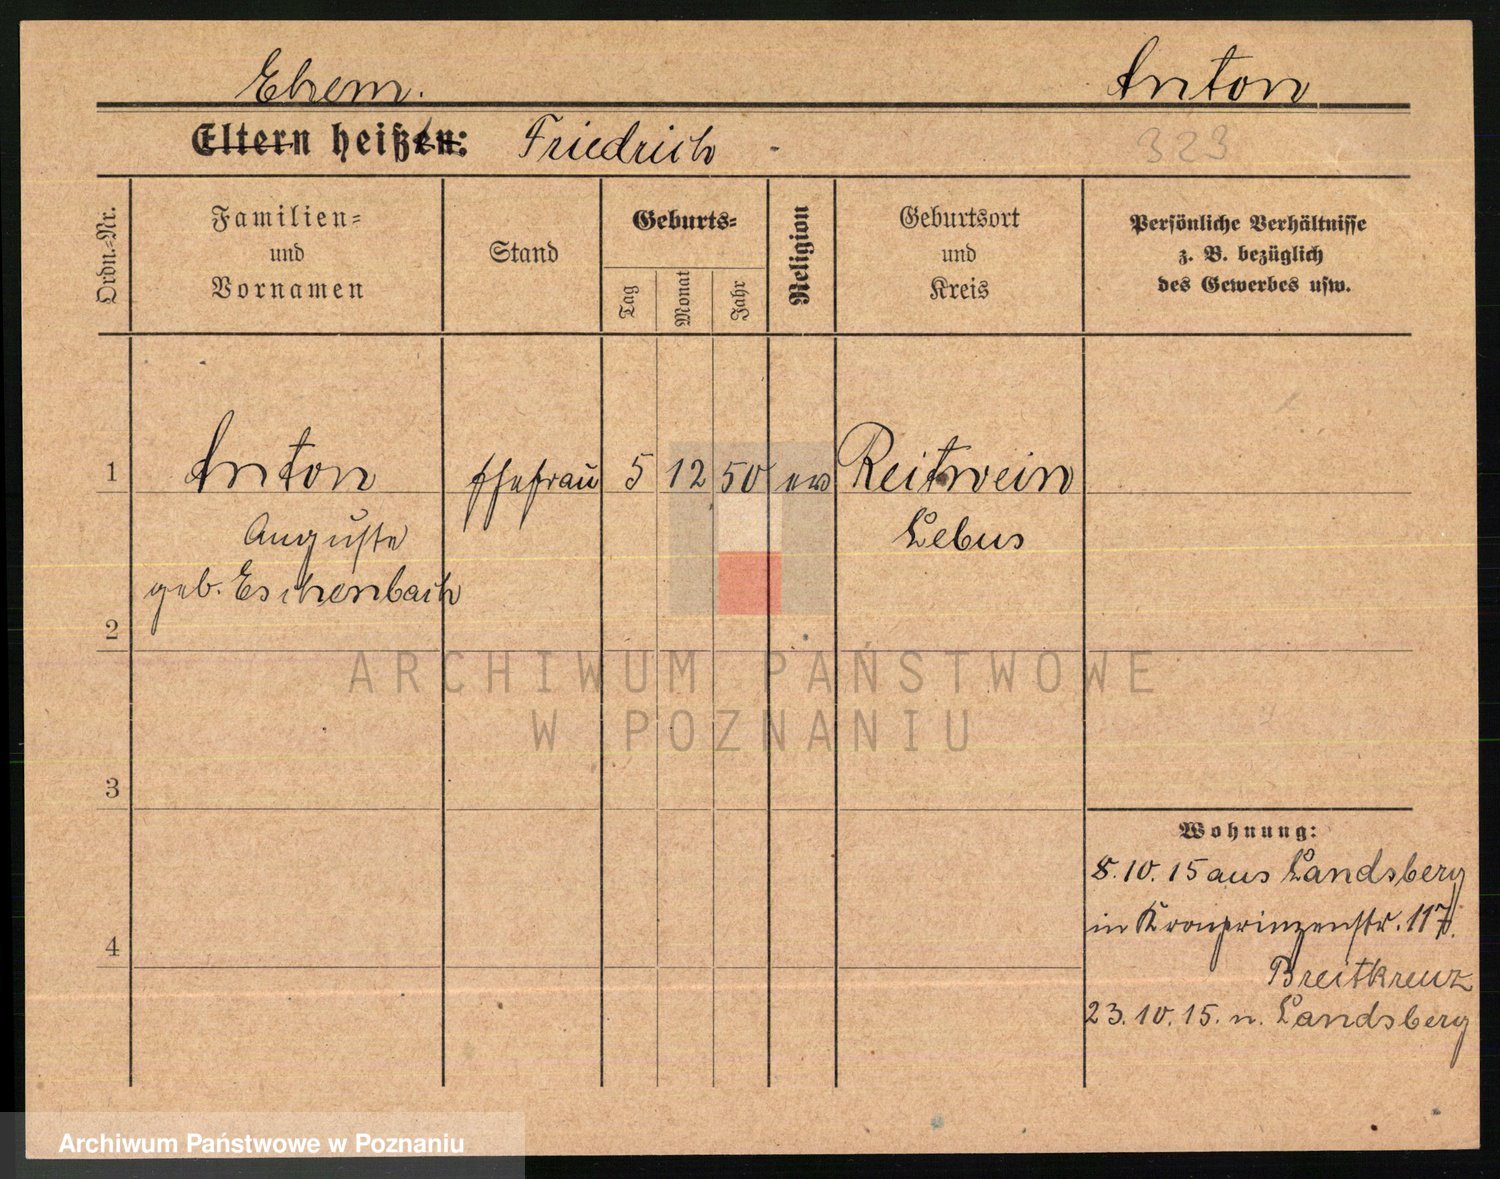 Ehem. Anton
Eltern heißen: Friedrich
323
Ordn.-Nr.
Familien-
und
Vornamen
Stand
Geburts-
Tag
Monat
Jahr
Religion
Geburtsort
und
Kreis
Persönliche Verhältnisse
z. B. bezüglich
des Gewerbes usw.
1 Anton Ehefrau 5 12 50 ev Reitwein
Auguste Lebus
geb. Eschenbach
2
ARCHIWUM PAŃSTWOWE
W POZNANIU
3
Wohnung:
8.10.15 aus Landsberg
in Kronprinzenstr. 117.
4
Breitkreuz
23.10.15. n. Landsberg
Archiwum Państwowe w Poznaniu